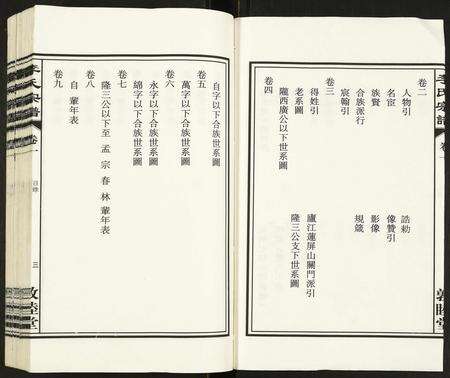 李氏宗譜
卷一
敦睦堂
卷二
人物引 誥勅
名宦 像贊引
族賢 影像
合族派行 規箴
宸翰引
卷三
得姓引 廬江蓮屏山關門派引
老系圖 隆三公支下世系圖
卷四
隴西廣公以下世系圖
自字以下合族世系圖
卷五
萬字以下合族世系圖
卷六
永字以下合族世系圖
綿字以下合族世系圖
卷七
隆三公以下至 孟 宗 春 林 軰年表
卷八
自 軰年表
卷九
李氏宗譜
卷一
目錄
三
敦睦堂